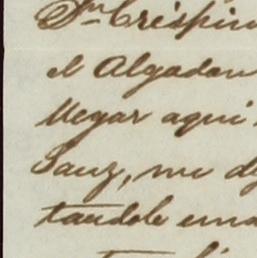 Sn. Crispin
el Algodon
llegar aqui
Sanz, me d
tandole una